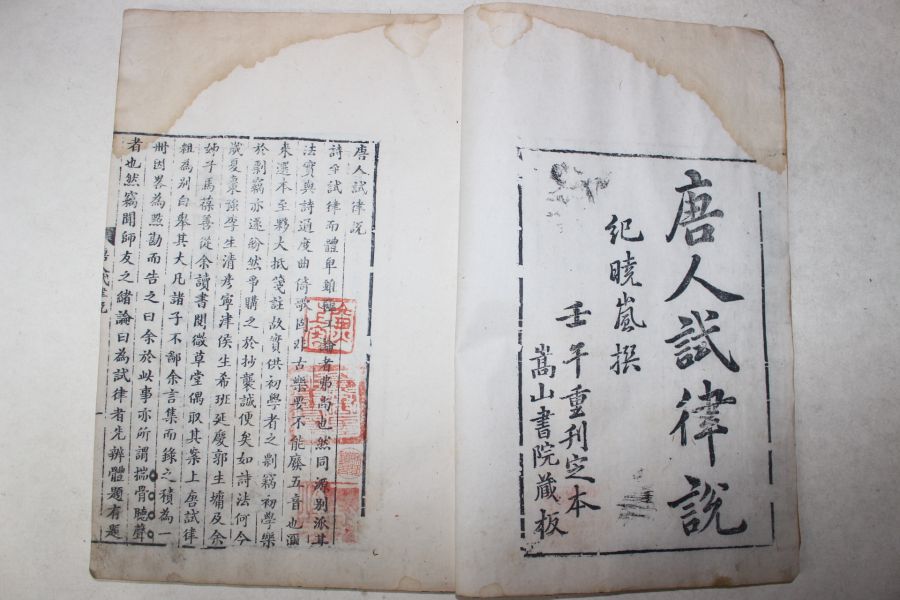 唐人試律說
紀曉嵐撰
壬午重刊定本
嵩山書院藏板
唐人試律說
詩至試律而體卑雖極工論者弗尚也然同源別派其
法實與詩通度曲倚歌固非古樂要不能廢五音也邇
來選本至夥大抵箋註故實供初學者之剽竊初學樂
於剽竊亦遂紛然爭購之於抄襲誠便矣如詩法何今
歲夏棗強李生清彥寧津侯生希班延慶郭生墉及余
姊子馬葆善從余讀書閱微草堂偶取其案上唐試律
粗為別白舉其大凡諸子不鄙余言集而錄之積為一
冊因畧為點勘而告之曰余於此事亦所謂揣骨聽聲
者也然竊聞師友之緒論曰為試律者先辨體題有題